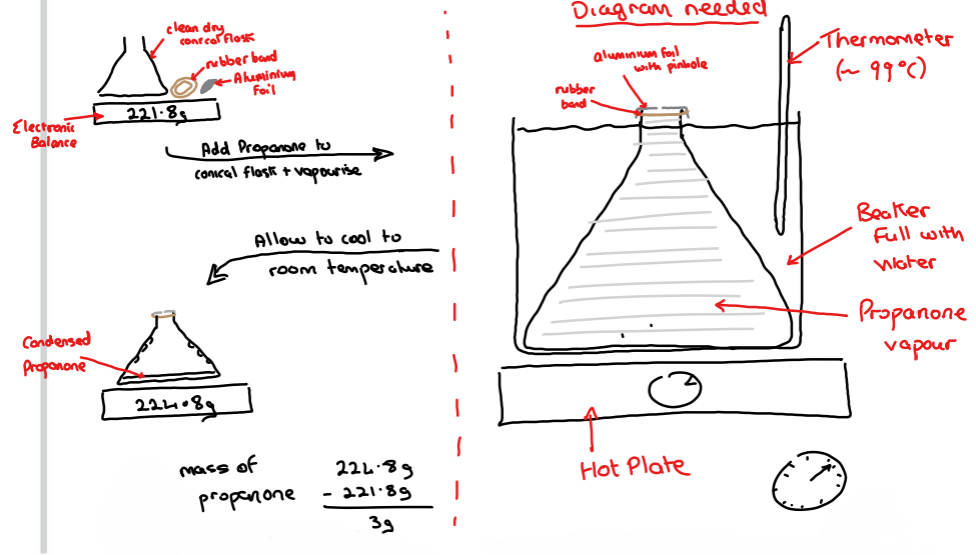 clean dry
conical flask
rubber band
Aluminium
Foil
221.8g
Electronic
Balance
Add Propanone to
conical flask + vapourise
Allow to cool to
room temperature
Condensed
Propanone
224.8g
mass of
propanone
224.8g
- 221.8g
3g
Diagram needed
aluminium foil
with pinhole
rubber
band
Thermometer
(~ 99°C)
Beaker
Full with
Water
Propanone
vapour
Hot Plate